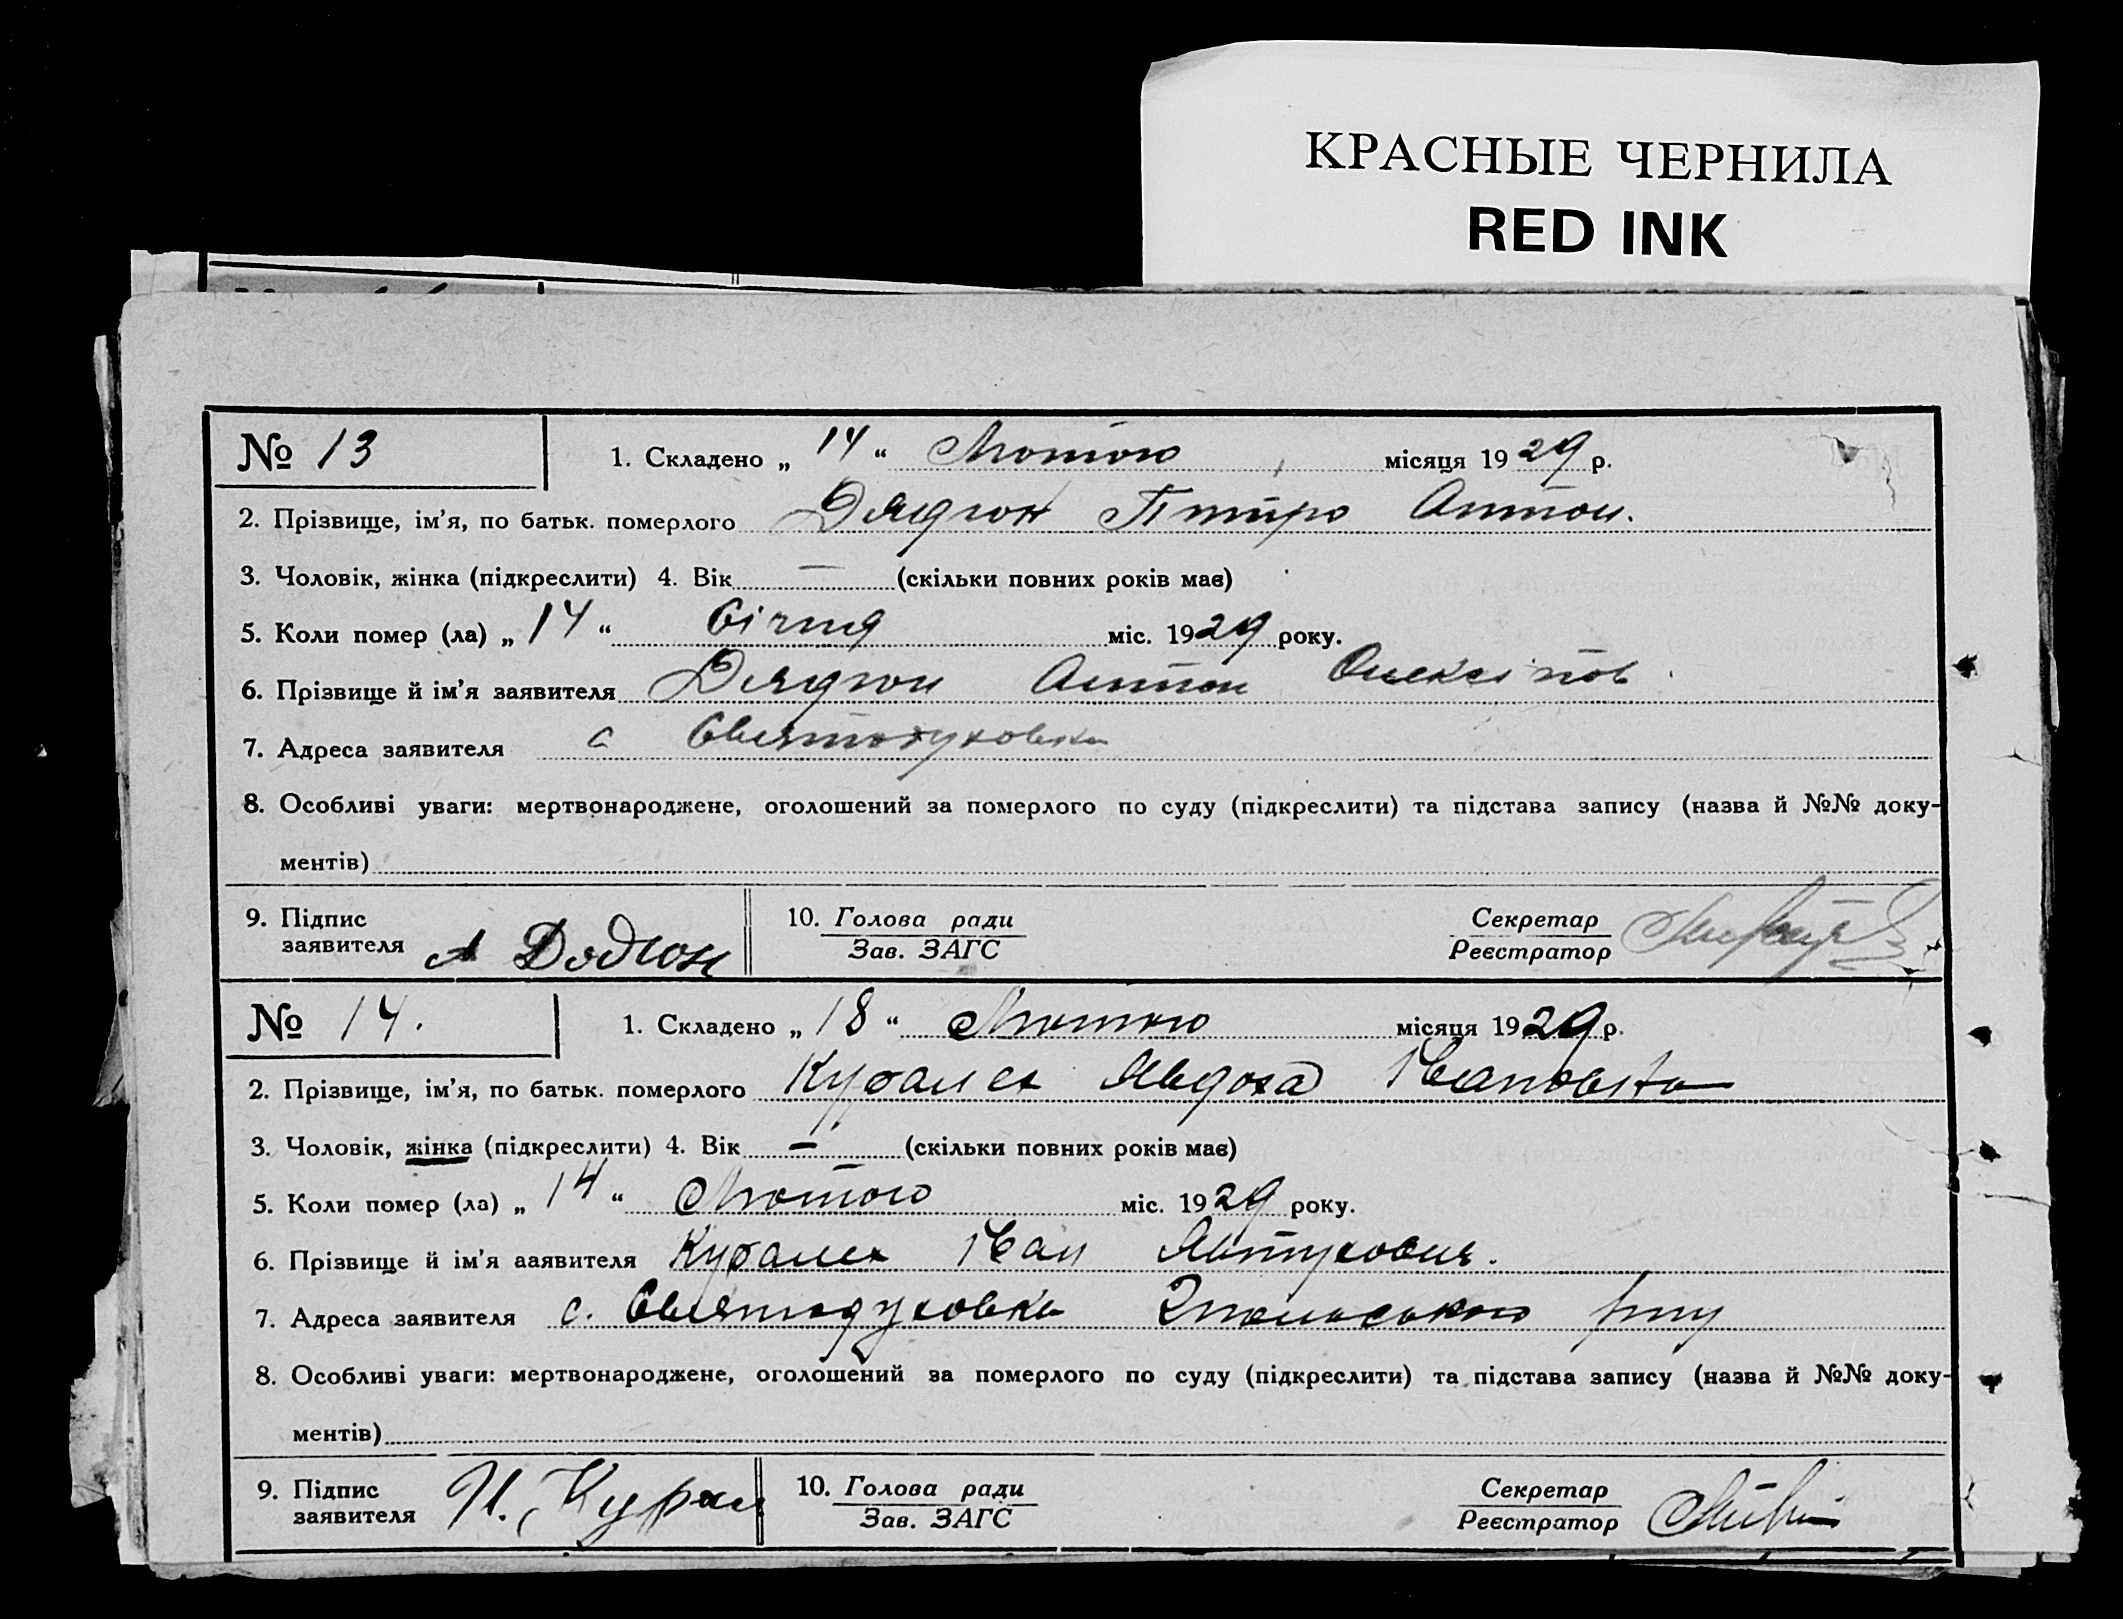 КРАСНЫЕ ЧЕРНИЛА
RED INK
№ 13
1. Складено „ 14 “ Лютого місяця 1929 р.
2. Прізвище, ім'я, по батьк. померлого Антон.
3. Чоловік, жінка (підкреслити) 4. Вік — (скільки повних років має)
5. Коли помер (ла) „ 14 “ Січня міс. 1929 року.
6. Прізвище й ім'я заявителя Антон
7. Адреса заявителя с Святодуховка
8. Особливі уваги: мертвонароджене, оголошений за померлого по суду (підкреслити) та підстава запису (назва й №№ доку-
ментів)
9. Підпис
заявителя А
10. Голова ради
Зав. ЗАГС
Секретар
Реєстратор
№ 14.
1. Складено „ 18 “ Лютого місяця 1929 р.
2. Прізвище, ім'я, по батьк. померлого Явдоха Івановка
3. Чоловік, жінка (підкреслити) 4. Вік — (скільки повних років має)
5. Коли помер (ла) „ 14 “ Лютого міс. 1929 року.
6. Прізвище й ім'я заявителя Іван
7. Адреса заявителя с. Святодуховка
8. Особливі уваги: мертвонароджене, оголошений за померлого по суду (підкреслити) та підстава запису (назва й №№ доку-
ментів)
9. Підпис
заявителя И.
10. Голова ради
Зав. ЗАГС
Секретар
Реєстратор